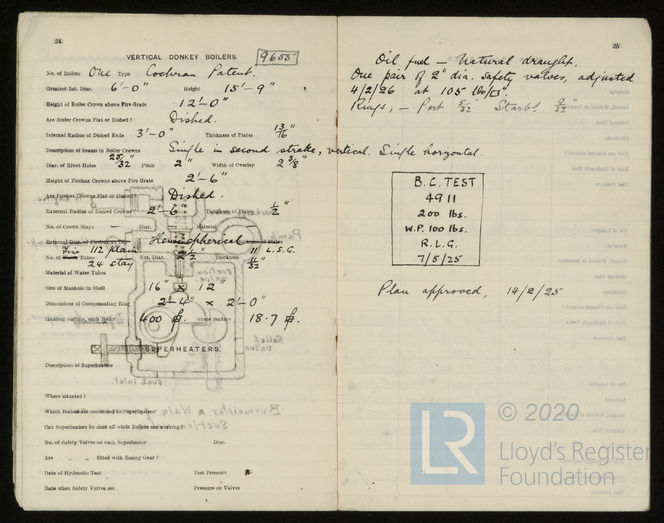 24
VERTICAL DONKEY BOILERS. 9655
No. of Boilers One Type Cochran Patent.
Greatest Int. Diar. 6'-0" Height 15'-9"
Height of Boiler Crown above Fire Grate 12'-0"
Are Boiler Crowns Flat or Dished? Dished.
Internal Radius of Dished Ends 3'-0" Thickness of Plates 13/16"
Description of Seams in Boiler Crowns Single in second strake, vertical. Single horizontal.
Diar. of Rivet Holes 25/32" Pitch 2" Width of Overlap 2 3/8"
Height of Firebox Crowns above Fire Grate 2'-6"
Are Firebox Crowns Flat or Dished? Dished.
External Radius of Dished Crowns 2'-6" Thickness of Plates 1/2"
No. of Crown Stays Diar. Material
External Diar. of Firebox at Top Hemispherical of Plates
Fire 112 plain 11 L.S.G.
No. of Tubes 24 stay Ext. Diar. 2 1/2" Thickness 11/32"
Material of Water Tubes
Size of Manhole in Shell 16" x 12"
Dimensions of Compensating Ring 2'-4" x 2'-0"
Heating Surface, each Boiler 400 Grate Surface 18.7
SUPERHEATERS.
Description of Superheaters
Where situated?
Which Boilers are connected to Superheaters
Can Superheaters be shut off while Boilers are working?
No. of Safety Valves on each Superheater Diar.
Are " " fitted with Easing Gear?
Date of Hydraulic Test Test Pressure
Date when Safety Valves set Pressure on Valves
25
Oil fuel – Natural draught.
One pair of 2" dia. safety valves, adjusted
4/2/26 at 105 lbs/□".
Rings, – Port 5/32" Starbd. 9/32"
B.C. TEST
4911
200 lbs.
W.P. 100 lbs.
R.L.G.
7/5/25
Plan approved, 14/2/25
LR © 2020
Lloyd's Register
Foundation